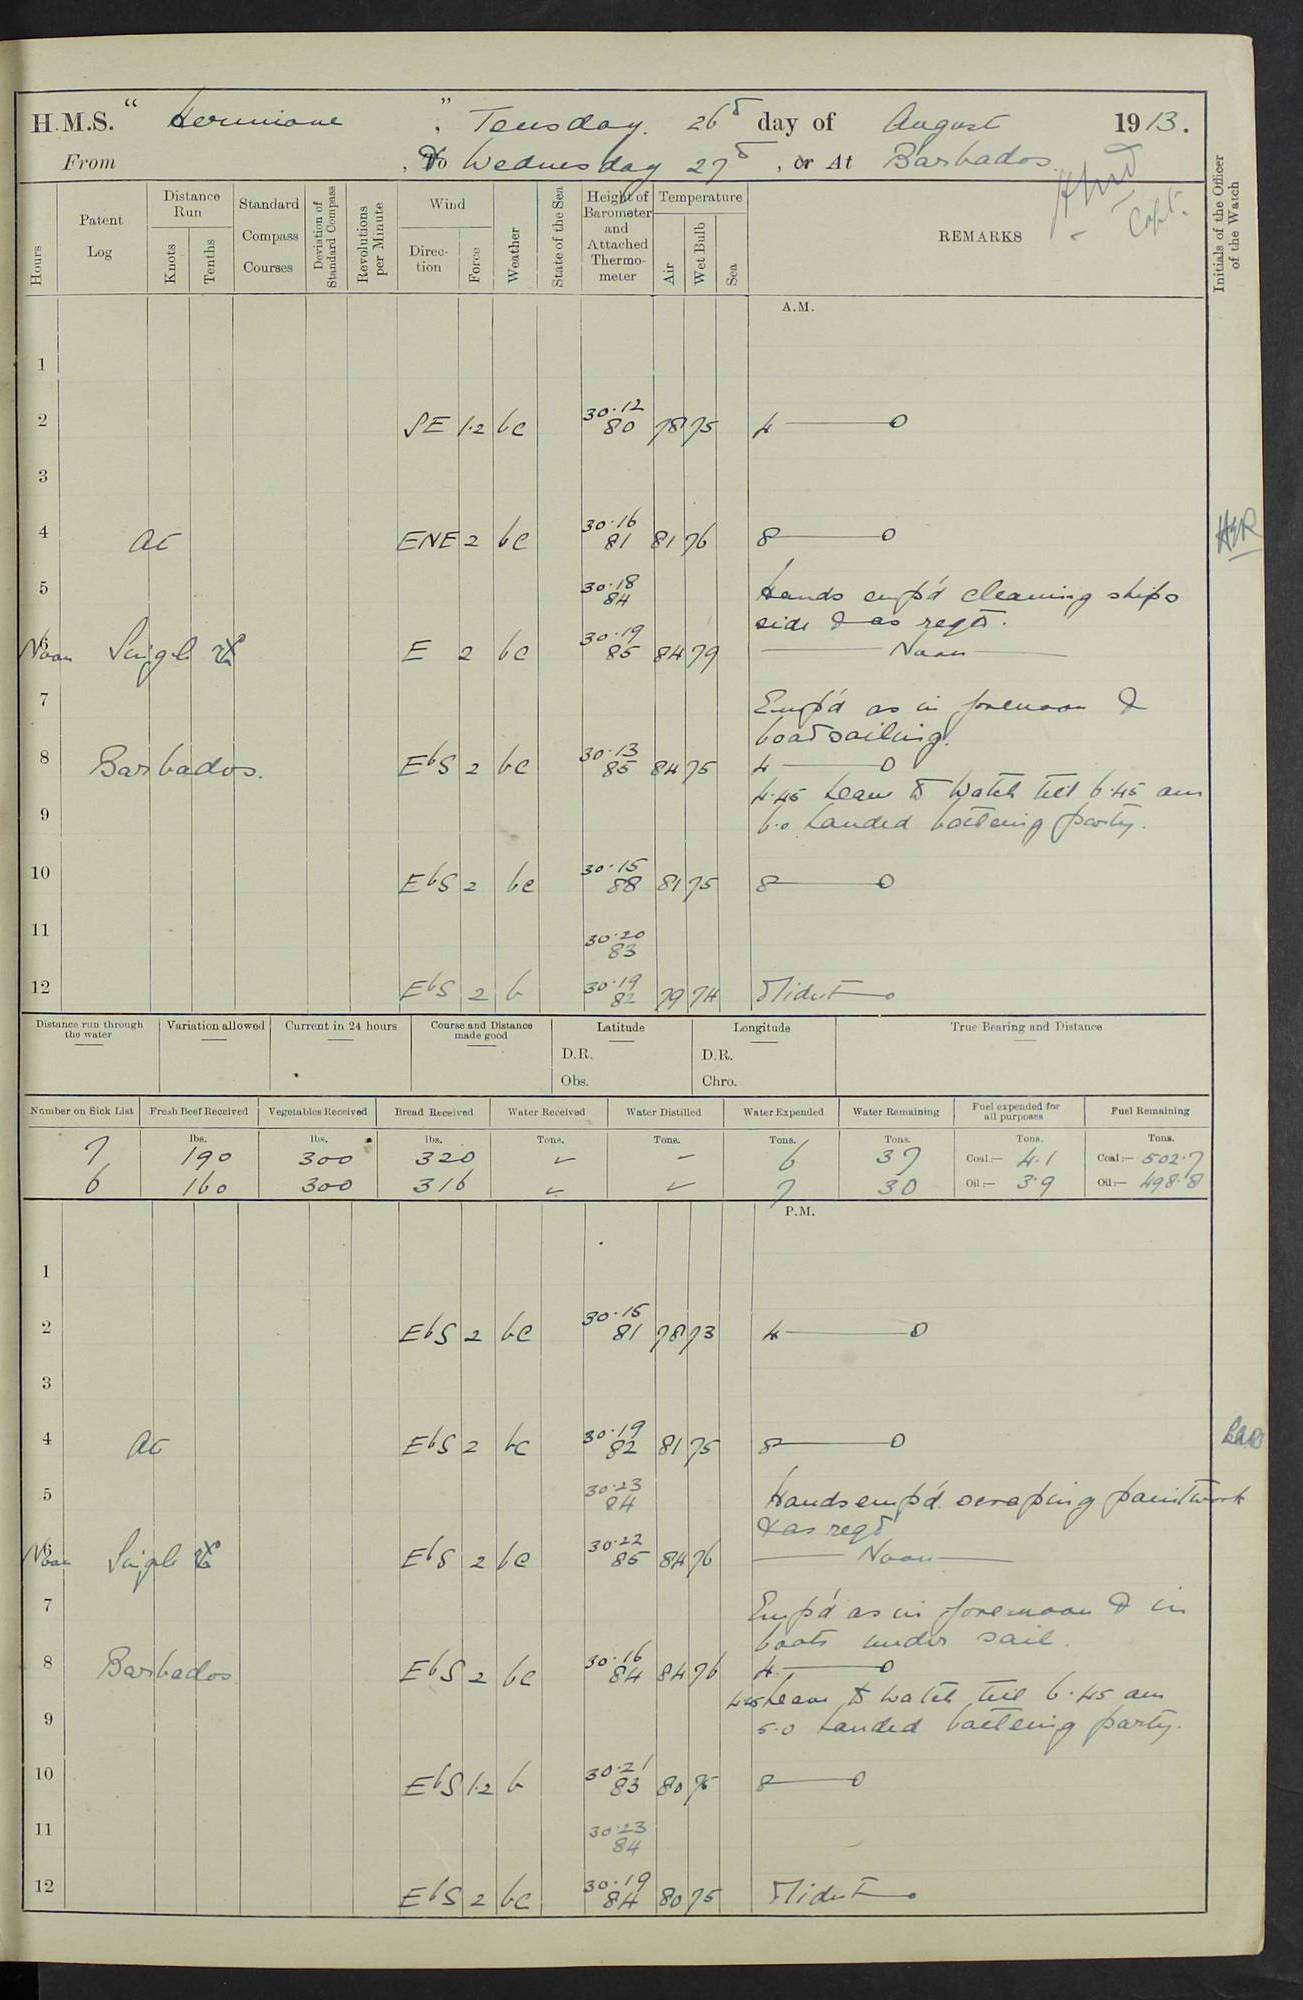 H.M.S. " Hermione ", Teusday. 26th day of August 1913.
From , To Wednesday 27th , or At Barbados.
Capt.
Hours
Patent Log
Distance Run
Knots
Tenths
Standard Compass Courses
Deviation of Standard Compass
Revolutions per Minute
Wind
Direction
Force
Weather
State of the Sea
Height of Barometer and Attached Thermometer
Temperature
Air
Wet Bulb
Sea
REMARKS
Initials of the Officer of the Watch
A.M.
1
2 SE 1.2 bc 30.12 80 78 75 4 — 0
3
4 At ENE 2 bc 30.16 81 81 76 8 — 0 HER
5 30.18 84 Hands emp'd cleaning ships
side & as reqd.
6 Noon Single E 2 bc 30.19 85 84 79 — Noon —
7 Emp'd as in forenoon &
boat sailing.
8 Barbados. EbS 2 bc 30.13 85 84 75 4 — 0
4.45 Leave to Watch till 6.45 am
9 6.0 Landed battering party.
10 EbS 2 bc 30.15 88 81 75 8 — 0
11 30.20 83
12 EbS 2 b 30.19 82 79 74 Midnt
Distance run through the water
Variation allowed
Current in 24 hours
Course and Distance made good
Latitude
D.R.
Obs.
Longitude
D.R.
Chro.
True Bearing and Distance
Number on Sick List
Fresh Beef Received
Vegetables Received
Bread Received
Water Received
Water Distilled
Water Expended
Water Remaining
Fuel expended for all purposes
Fuel Remaining
lbs. lbs. lbs. Tons. Tons. Tons. Tons. Tons. Tons.
7 190 300 320 ✓ – 6 37 Coal:— 4.1 Coal:— 502.7
6 160 300 316 ✓ ✓ 7 30 Oil:— 3.9 Oil:— 498.8
P.M.
1
2 EbS 2 bc 30.15 81 78 73 4 — 0
3
4 At EbS 2 bc 30.19 82 81 75 8 — 0
5 30.23 84 Hands emp'd scraping paintwork
& as reqd
6 Noon Single EbS 2 bc 30.22 85 84 76 — Noon —
7 Emp'd as in forenoon & in
boats under sail.
8 Barbados EbS 2 bc 30.16 84 84 76 4 — 0
4.45 Leave to watch till 6.45 am
9 5.0 Landed battering party.
10 EbS 1.2 b 30.21 83 80 75 8 — 0
11 30.23 84
12 EbS 2 bc 30.19 84 80 75 Midnt